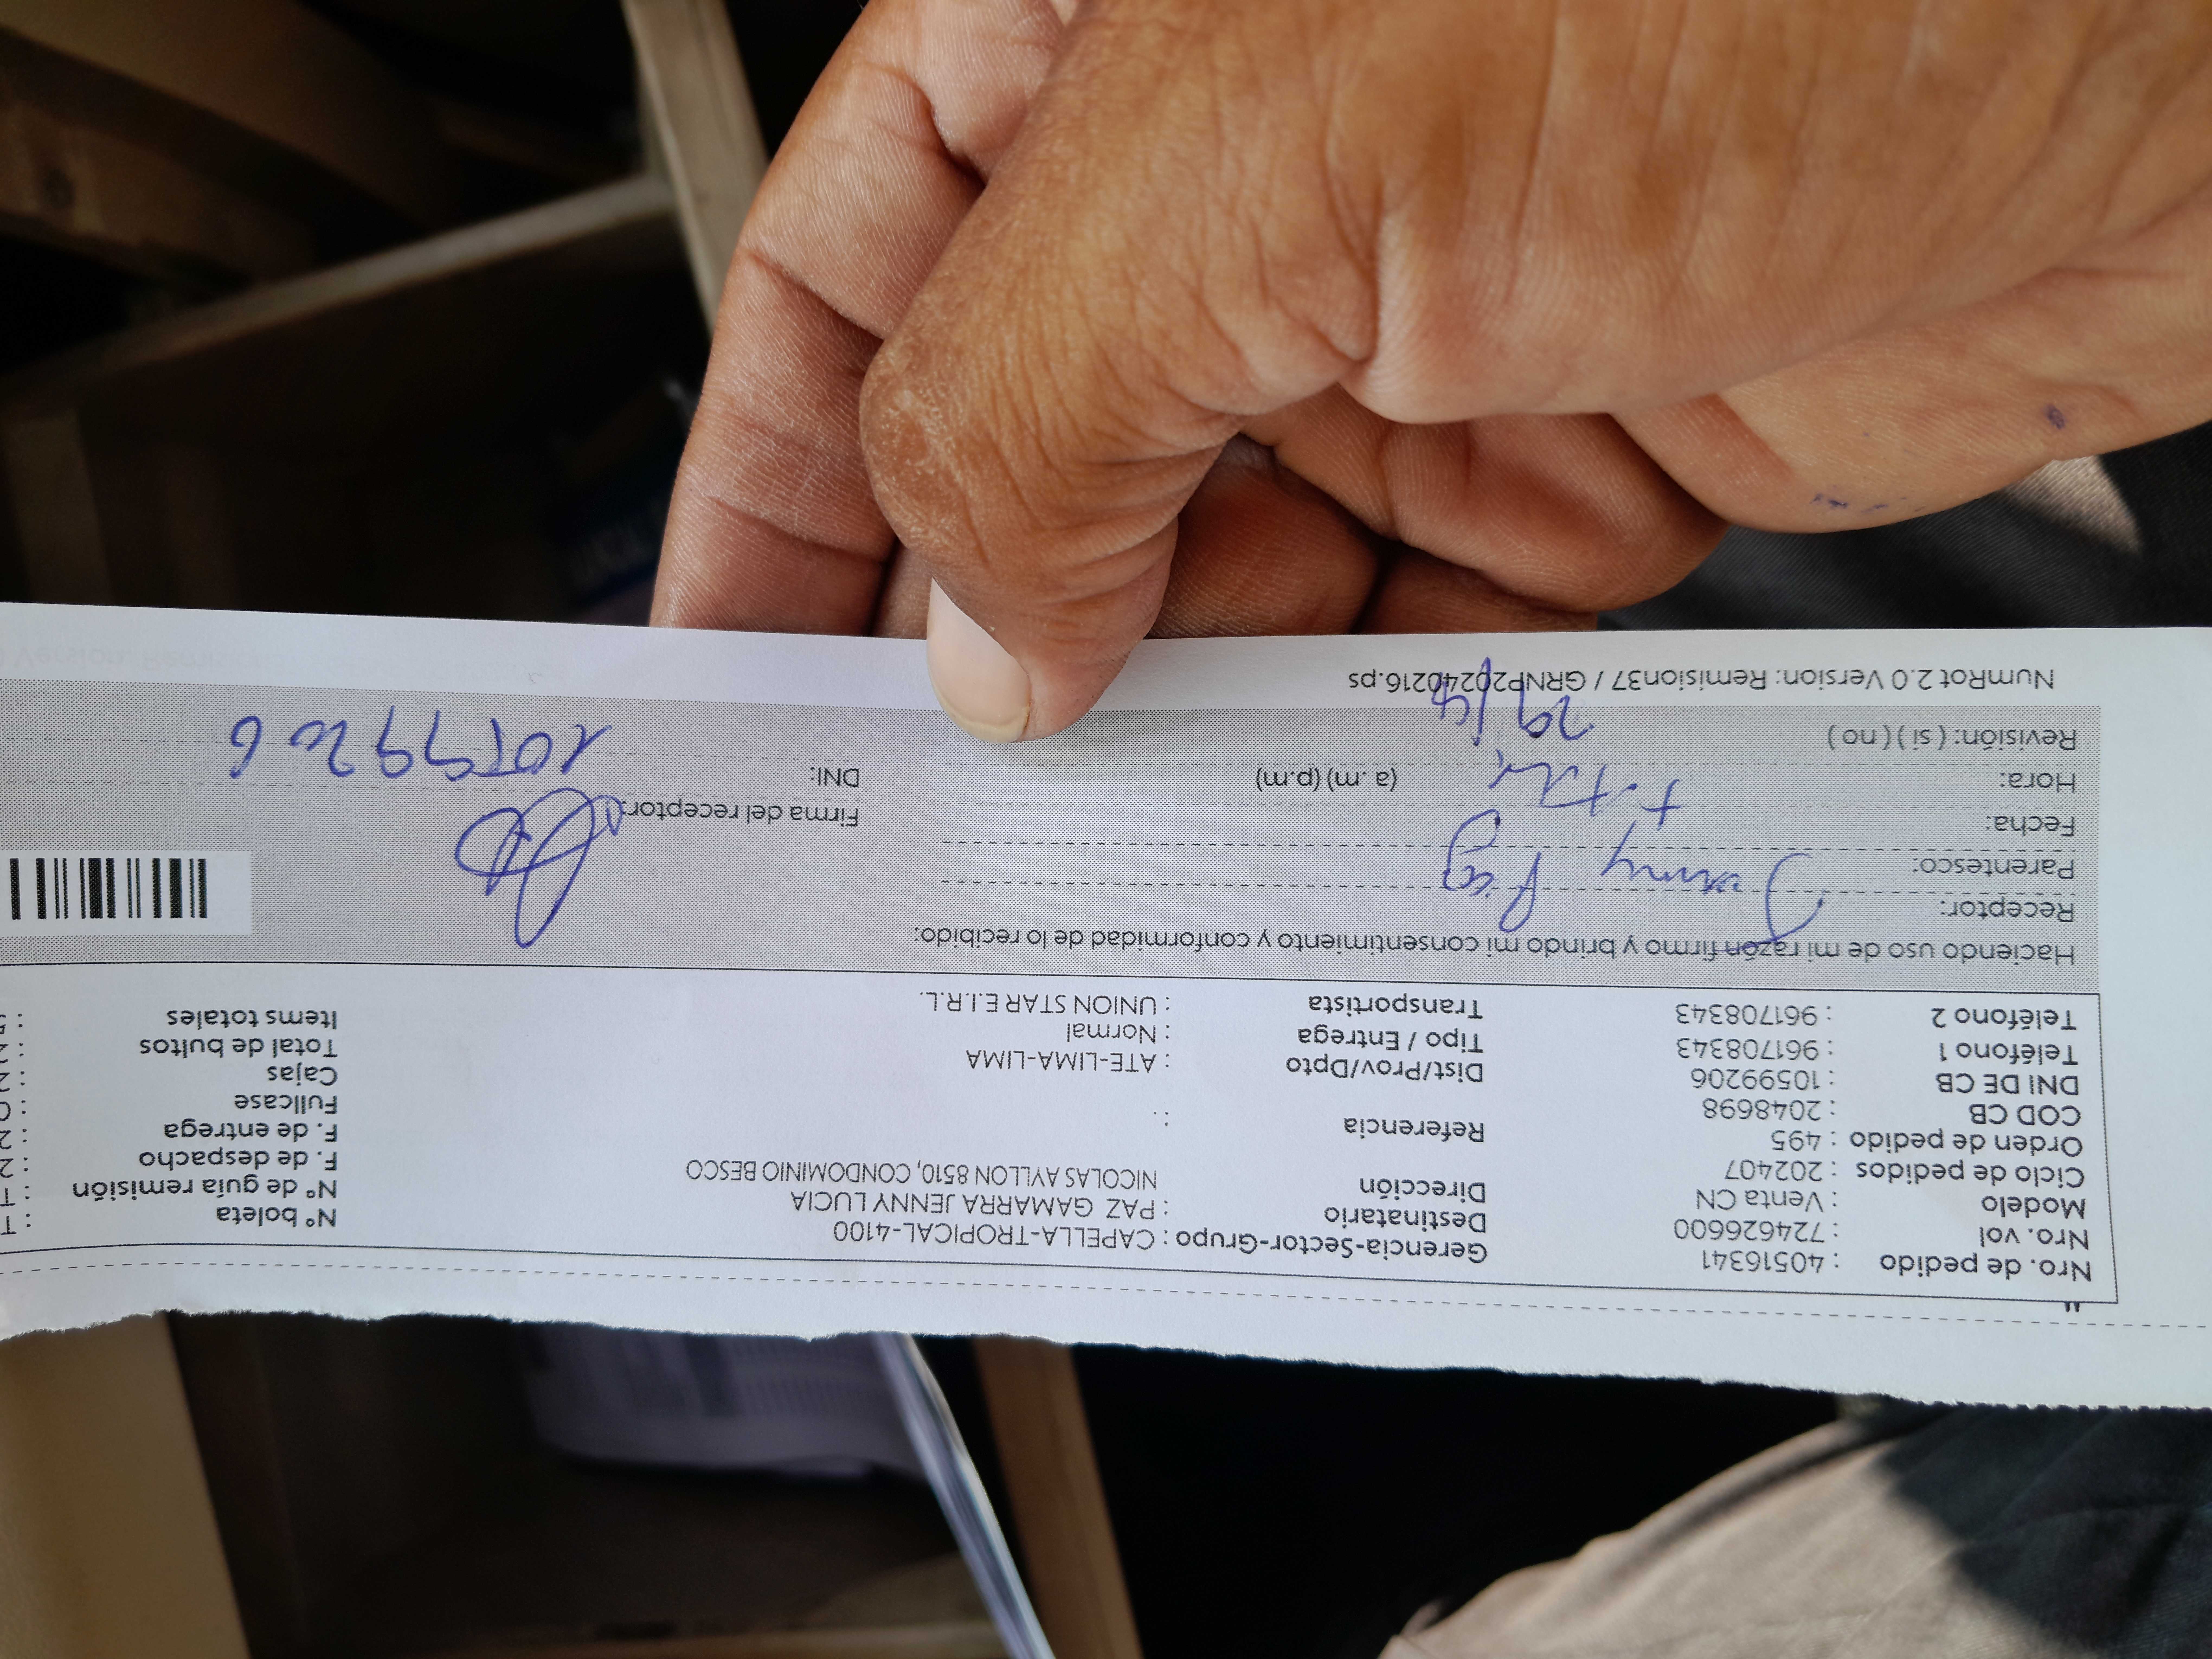 Nro. de pedido : 40516341
Nro. vol : 724626600
Modelo : Venta CN
Ciclo de pedidos : 202407
Orden de pedido : 495
COD CB : 2048698
DNI DE CB : 10599206
Teléfono 1 : 961708343
Teléfono 2 : 961708343
Gerencia-Sector-Grupo : CAPELLA-TROPICAL-4100
Destinatario : PAZ GAMARRA JENNY LUCIA
Dirección NICOLAS AYLLON 8510, CONDOMINIO BESCO
Referencia : .
Dist/Prov/Dpto : ATE-LIMA-LIMA
Tipo / Entrega : Normal
Transportista : UNION STAR E.I.R.L.
N° boleta : T
N° de guía remisión : T
F. de despacho : 2
F. de entrega : 2
Fullcase : 0
Cajas : 2
Total de bultos : 2
Items totales : 5
Haciendo uso de mi razón firmo y brindo mi consentimiento y conformidad de lo recibido:
Receptor: Jenny Paz
Parentesco:
Fecha:
Hora: (a. m) (p.m)
Revisión: ( si ) ( no ) 29/4
Firma del receptor:
DNI: 10599206
NumRot 2.0 Version: Remision37 / GRNP20240216.ps